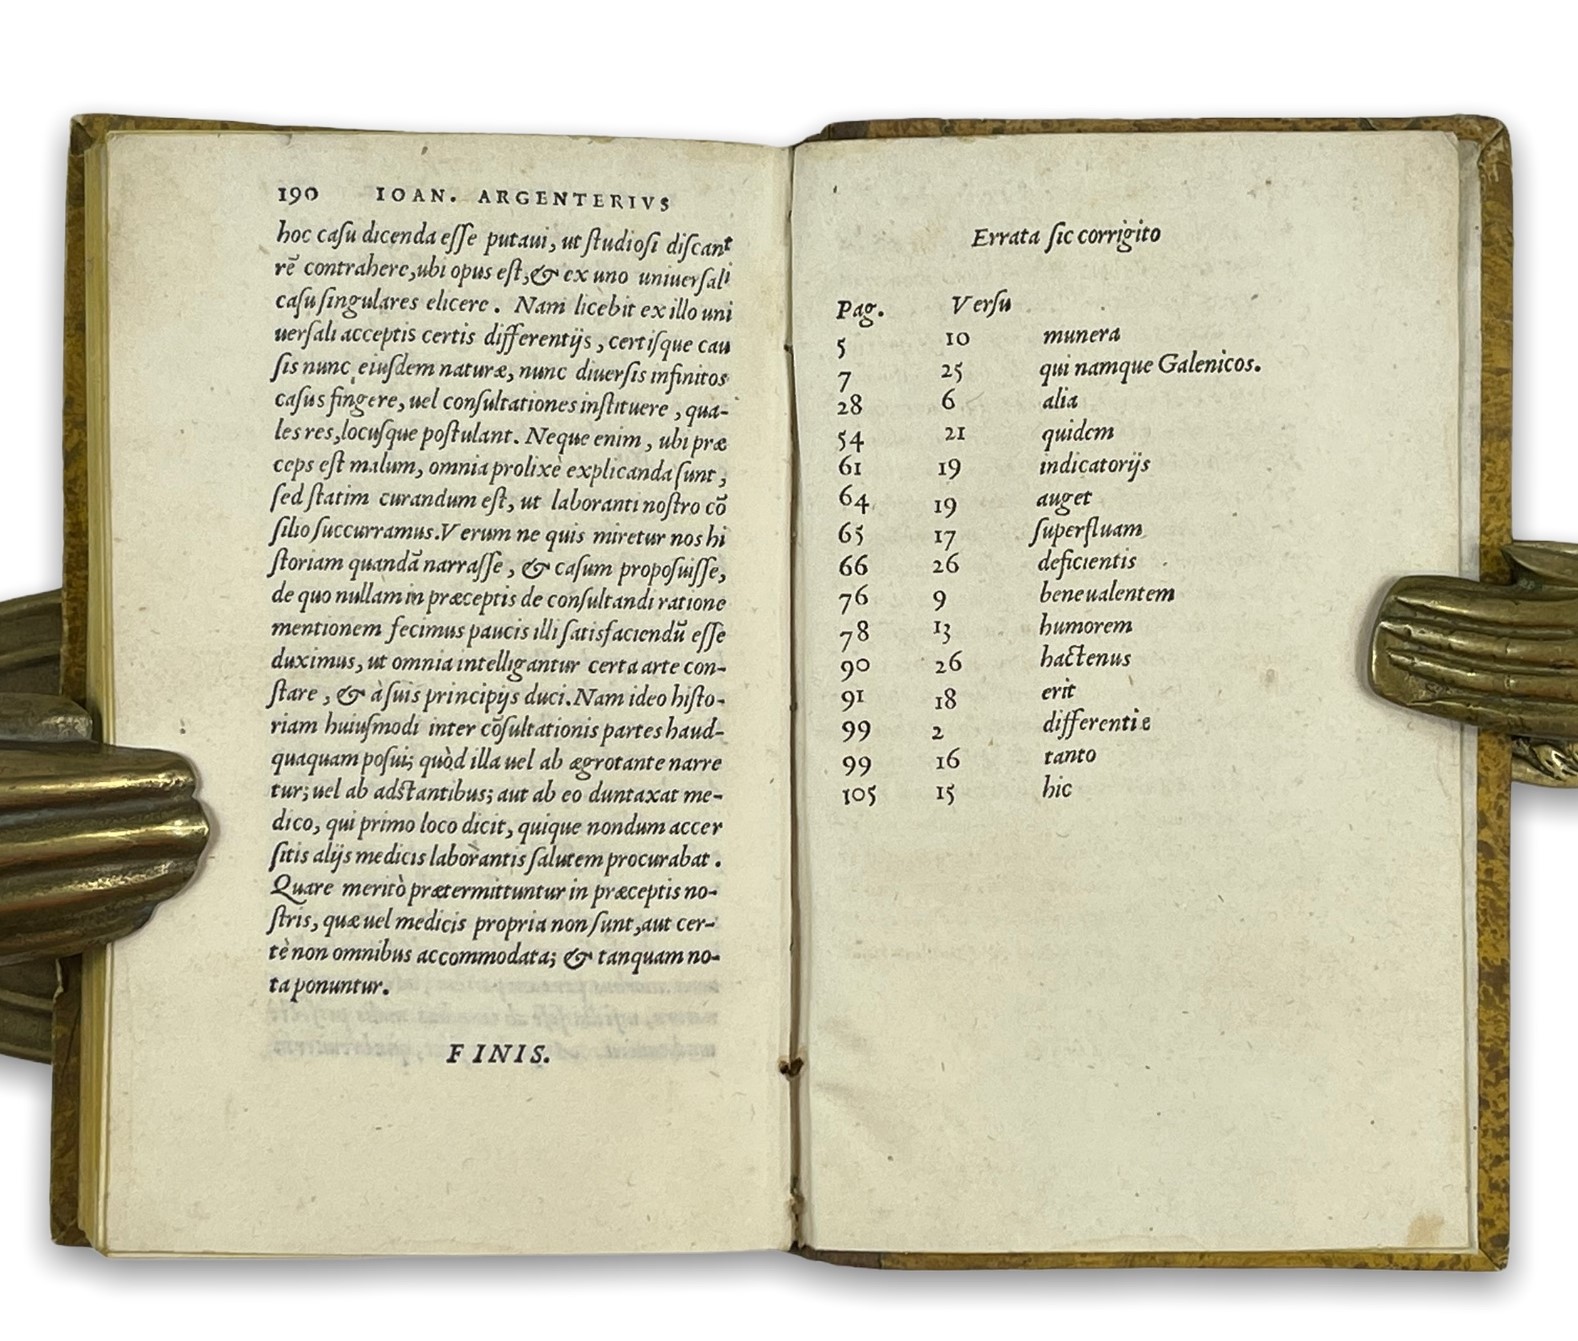 190 IOAN. ARGENTERIVS
hoc caſu dicenda eſſe putaui, ut ſtudioſi diſcant
rẽ contrahere, ubi opus eſt, & ex uno uniuerſali
caſu ſingulares elicere. Nam licebit ex illo uni
uerſali acceptis certis differentijs, certiſque cau
ſis nunc eiuſdem naturæ, nunc diuerſis infinitos
caſus fingere, uel conſultationes inſtituere, qua-
les res, locuſque poſtulant. Neque enim, ubi præ
ceps eſt malum, omnia prolixè explicanda ſunt,
ſed ſtatim curandum eſt, ut laboranti noſtro cõ
ſilio ſuccurramus. Verum ne quis miretur nos hi
ſtoriam quandã narraſſe, & caſum propoſuiſſe,
de quo nullam in præceptis de conſultandi ratione
mentionem fecimus paucis illi ſatisfaciendũ eſſe
duximus, ut omnia intelligantur certa arte con-
ſtare, & à ſuis principijs duci. Nam ideo hiſto-
riam huiuſmodi inter cõſultationis partes haud-
quaquam poſui; quòd illa uel ab ægrotante narre
tur; uel ab adſtantibus; aut ab eo duntaxat me-
dico, qui primo loco dicit, quique nondum accer
ſitis alijs medicis laborantis ſalutem procurabat.
Quare meritò prætermittuntur in præceptis no-
ſtris, quæ uel medicis propria non ſunt, aut cer-
tè non omnibus accommodata; & tanquam no-
ta ponuntur.
FINIS.
Errata ſic corrigito
Pag. Verſu
5 10 munera
7 25 qui namque Galenicos.
28 6 alia
54 21 quidem
61 19 indicatorijs
64 19 auget
65 17 ſuperfluam
66 26 deficientis
76 9 beneualentem
78 13 humorem
90 26 hactenus
91 18 erit
99 2 differentie
99 16 tanto
105 15 hic